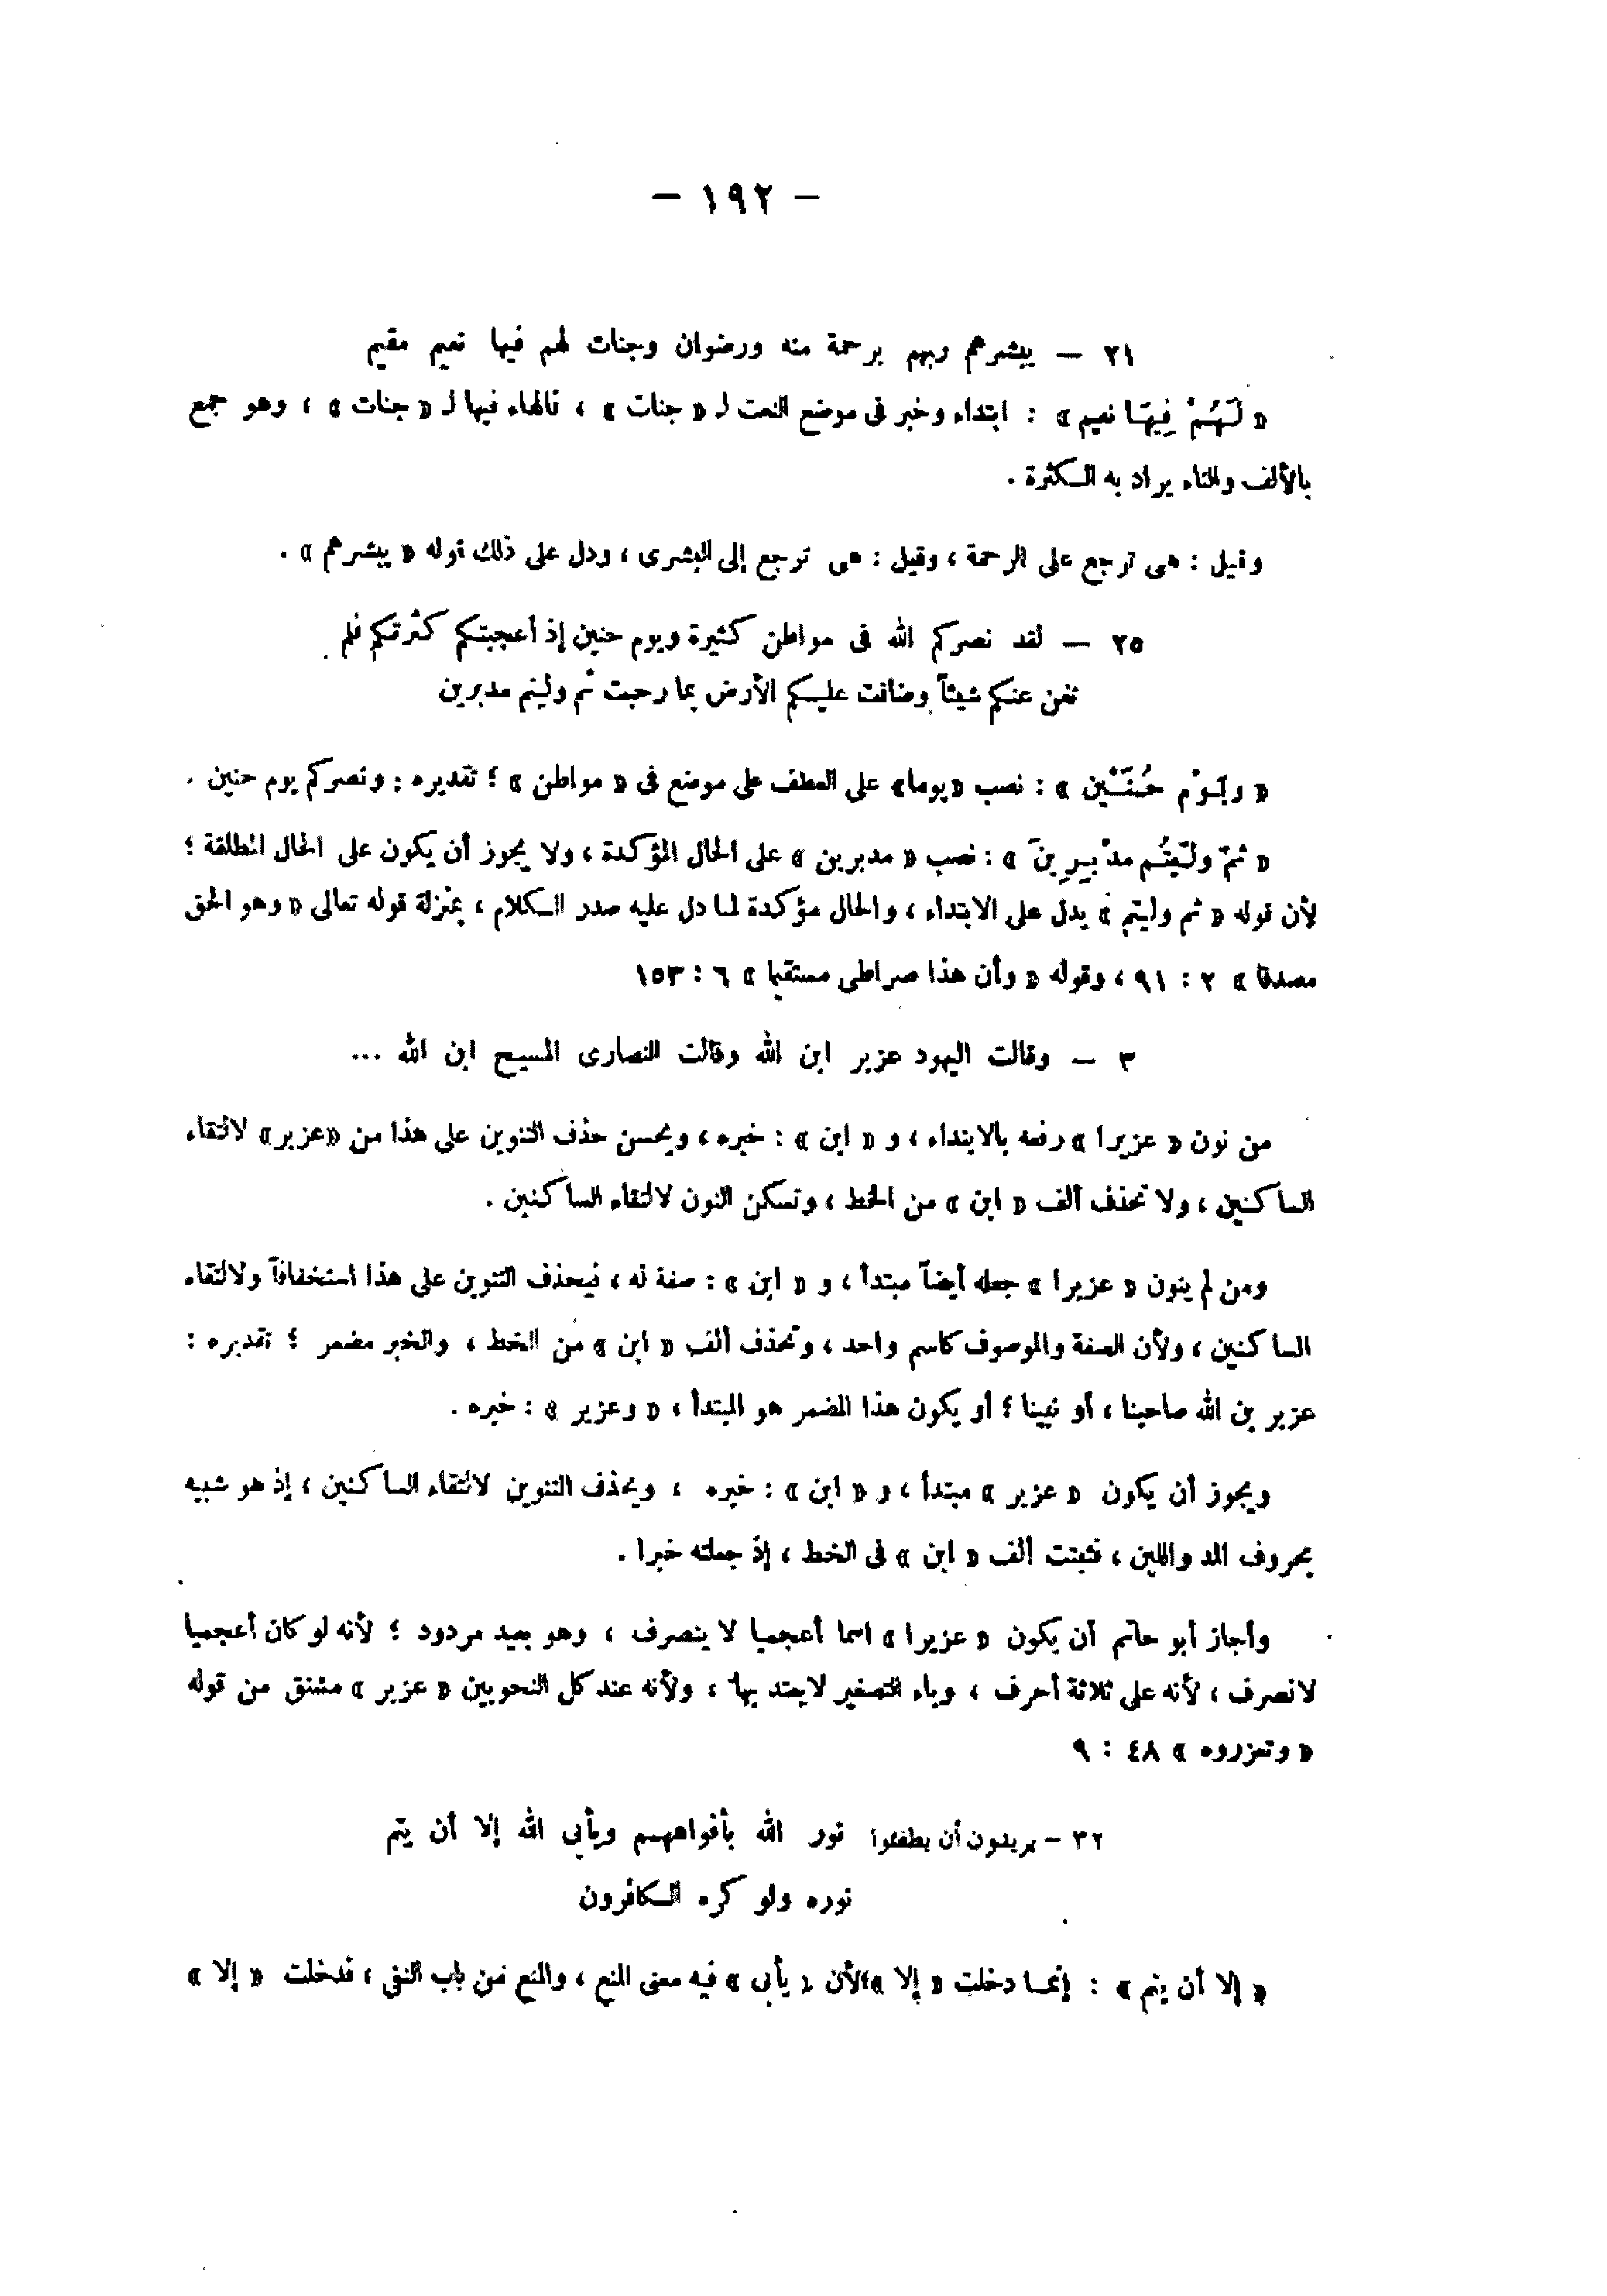 — ١٩٢ —
٢١ — يبشرهم ربهم برحمة منه ورضوان وجنات لهم فيها نعيم مقيم
« لَهُمْ فِيهَا نعيم » : ابتداء وخبر فى موضع النعت لـ « جنات » ، فالهاء فيها لـ « جنات » ، وهو جمع
بالألف والتاء يراد به الكثرة .
وقيل : هى ترجع على الرحمة ، وقيل : هى ترجع إلى البشرى ، ودل على ذلك قوله « يبشرهم » .
٢٥ — لقد نصركم الله فى مواطن كثيرة ويوم حنين إذ أعجبتكم كثرتكم فلم
تغن عنكم شيئاً وضاقت عليكم الأرض بما رحبت ثم وليتم مدبرين
« ويَوْم حُنَيْن » : نصب «يوما» على العطف على موضع فى « مواطن » ؛ تقديره : ونصركم يوم حنين .
« ثمّ ولّيْتُم مدْبِرِينَ » : نصب « مدبرين » على الحال المؤكدة ، ولا يجوز أن يكون على الحال المطلقة ؛
لأن قوله « ثم وليتم » يدل على الابتداء ، والحال مؤكدة لما دل عليه صدر الكلام ، بمنزلة قوله تعالى « وهو الحق
مصدقا » ٢ : ٩١ ، وقوله « وأن هذا صراطى مستقيما » ٦ : ١٥٣
٣ — وقالت اليهود عزير ابن الله وقالت النصارى المسيح ابن الله ...
من نون « عزيرا » رفعه بالابتداء ، و « ابن » : خبره ، ويحسن حذف التنوين على هذا من «عزير» لالتقاء
الساكنين ، ولا تحذف ألف « ابن » من الخط ، وتسكن النون لالتقاء الساكنين .
ومن لم ينون « عزيرا » جعله أيضاً مبتدأ ، و « ابن » : صفة له ، فيحذف التنوين على هذا استخفافاً ولالتقاء
الساكنين ، ولأن الصفة والموصوف كاسم واحد ، وتحذف ألف « ابن » من الخط ، والخبر مضمر ؛ تقديره :
عزير بن الله صاحبنا ، أو نبينا ؛ أو يكون هذا المضمر هو المبتدأ ، « وعزير » : خبره .
ويجوز أن يكون « عزير » مبتدأ ، و « ابن » : خبره ، ويحذف التنوين لالتقاء الساكنين ، إذ هو شبيه
بحروف المد واللين ، فثبتت ألف « ابن » فى الخط ، إذ جعلته خبرا .
وأجاز أبو حاتم أن يكون « عزيرا » اسما أعجميا لا ينصرف ، وهو بعيد مردود ؛ لأنه لو كان أعجميا
لانصرف ، لأنه على ثلاثة أحرف ، وياء التصغير لايعتد بها ، ولأنه عند كل النحويين « عزير » مشتق من قوله
« وتعزروه » ٤٨ : ٩
٣٢ – يريدون أن يطفئوا نور الله بأفواههم ويأبى الله إلا أن يتم
نوره ولو كره الكافرون
« إلا أن يتم » : إنما دخلت « إلا » لأن « يأبى » فيه معنى المنع ، والمنع من باب النفى ، فدخلت « إلا »